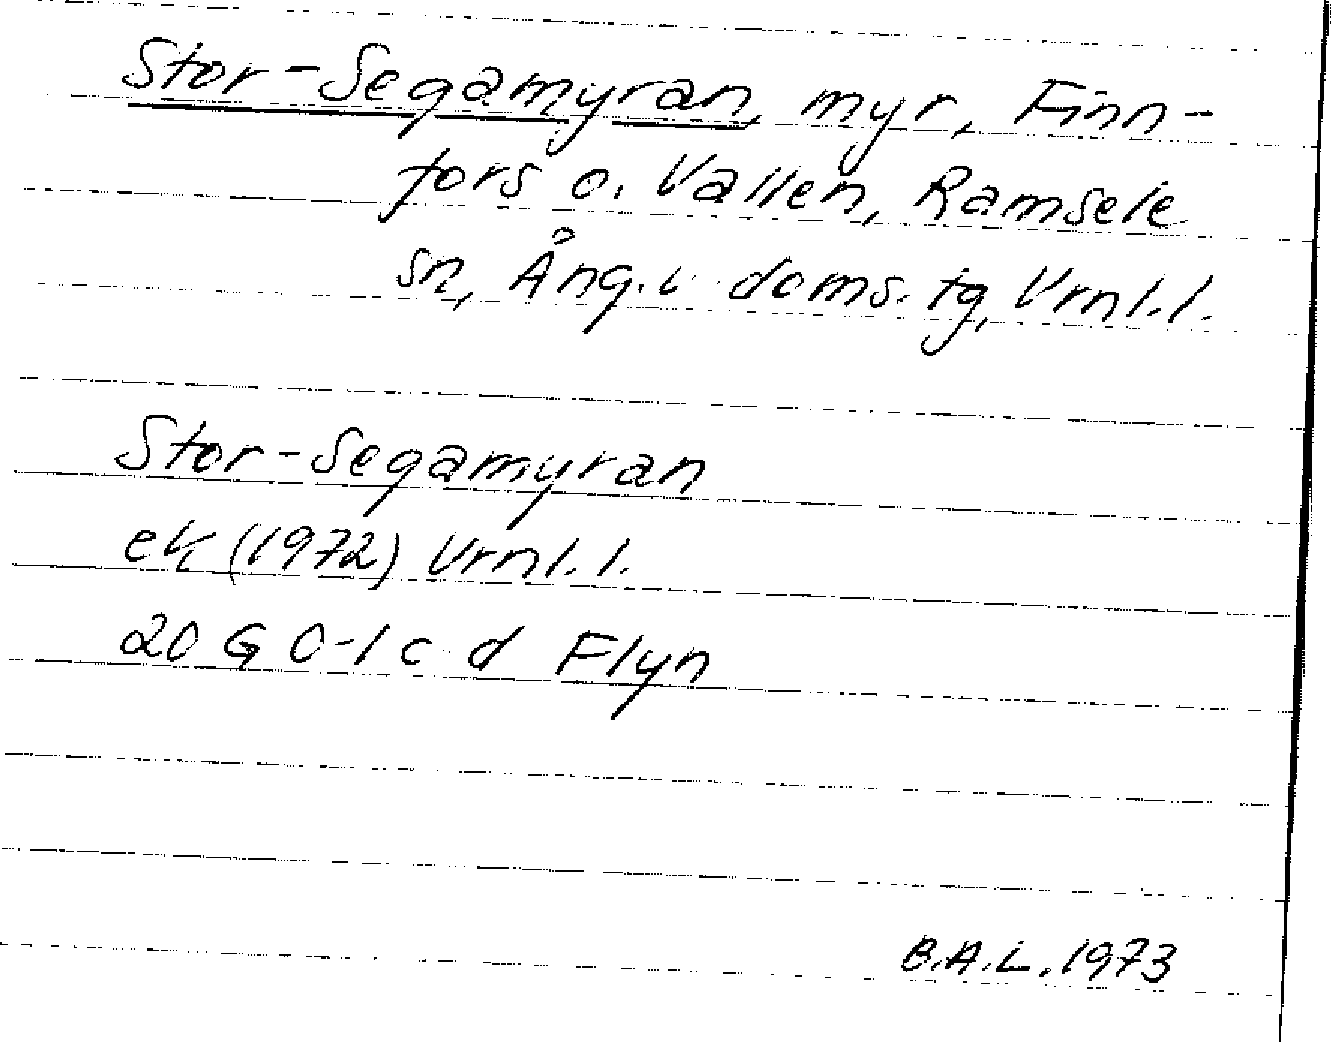 Stor-Segamyran, myr, Finn-
fors o. Vallen, Ramsele
sn, Ång. v. doms. tg, Vrnl.l.
Stor-Segamyran
ek (1972) Vrnl.l.
20 G 0-1 c d Flyn
B.A.L. 1973